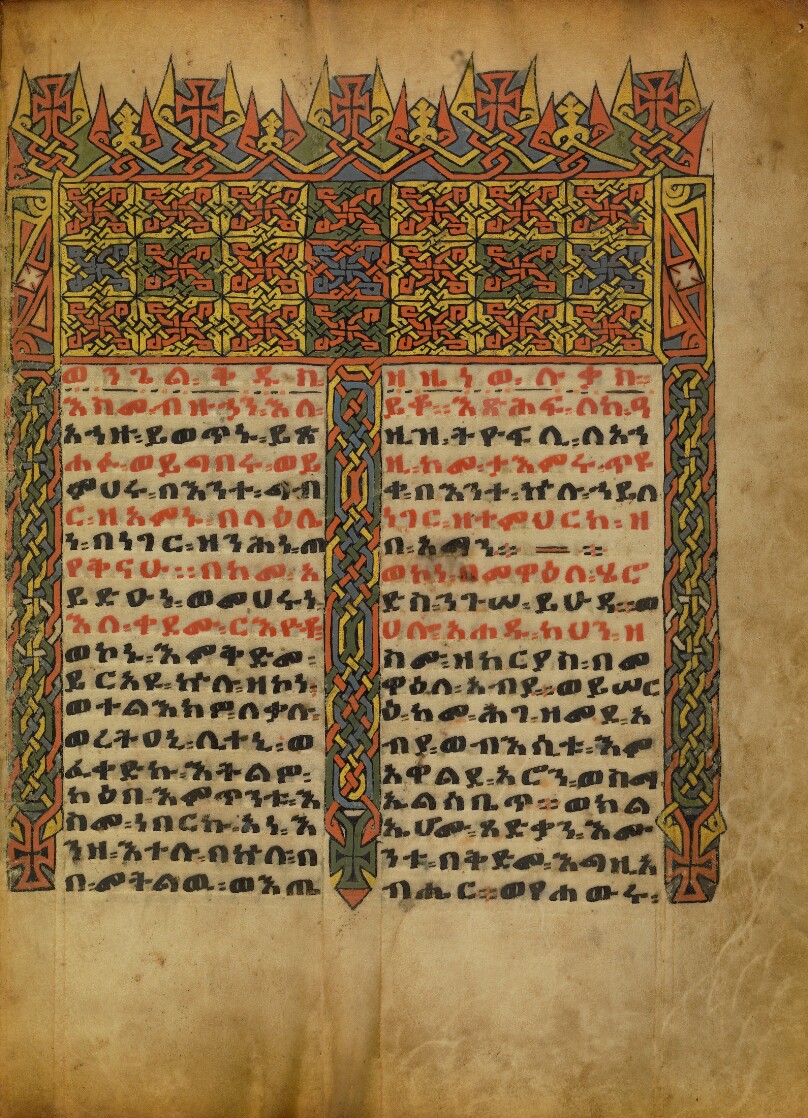 ወንጌል፡ ቅዱስ፡
እስመ፡ ብዙኃን፡ እለ፡
አኀዙ፡ ይወጥኑ፡ ይጽ
ሐፉ፡ ወይግበሩ፡ ወይ
ምህሩ፡ በእንተ፡ ግብ
ር፡ ዘአምኑ፡ በላዕሌ
ነ፡ በነገር፡ ዘንሕነ፡ ጠ
የቅናሁ። በከመ፡ አ
ይድዑነ፡ ወመሀሩነ፡
እለ፡ ቀደሙ፡ ርእዮቶ
ወኮኑ፡ እምቅድመ፡
ይርአዩ፡ ኵሉ፡ ዘኮነ፡
ወተልእክዎ፡ ለቃሉ፡
ወረትዐኒ፡ ሊተኒ፡ ወ
ፈቀድኩ፡ እትልዎ፡
ክዕበ፡ እምጥንቱ፡ እ
ስመ፡ ነበርኩ፡ አነ፡ እ
ንዘ፡ እተሉ፡ በኵሉ፡ በ
በ፡ መትልዉ፡ ወእጤ
ዘዜነወ፡ ሉቃስ።
ይቶ፡ እጽሕፍ፡ ለከ፡ ዓ
ዚዝ፡ ትዮፍሊ፡ ለእን
ዚ፡ ከመ፡ ታእምር፡ ጥዩ
ቀ፡ በእንተ፡ ኵሉ፡ ኀይለ
ነገር፡ ዘተምህርከ፡ ዘ
በ፡ አማን። ።
ወኮነ፡ በመዋዕለ፡ ሄሮ
ድስ፡ ንጉሠ፡ ይሁዳ። ወ
ሀሎ፡ አሐዱ፡ ካህን፡ ዘ
ስሙ፡ ዘካርያስ፡ በመ
ዋዕለ፡ አብያ። ወይሠር
ዕ፡ ከመ፡ ሕገ፡ ዘመደ፡ አ
ብያ፡ ወብእሲቱ፡ እም
አዋልደ፡ አሮን፡ ወስማ
ኤልሳቤጥ። ወክል
ኤሆሙ፡ ጻድቃን፡ እሙ
ንቱ፡ በቅድመ፡ እግዚአ
ብሔር። ወየሐውሩ፡